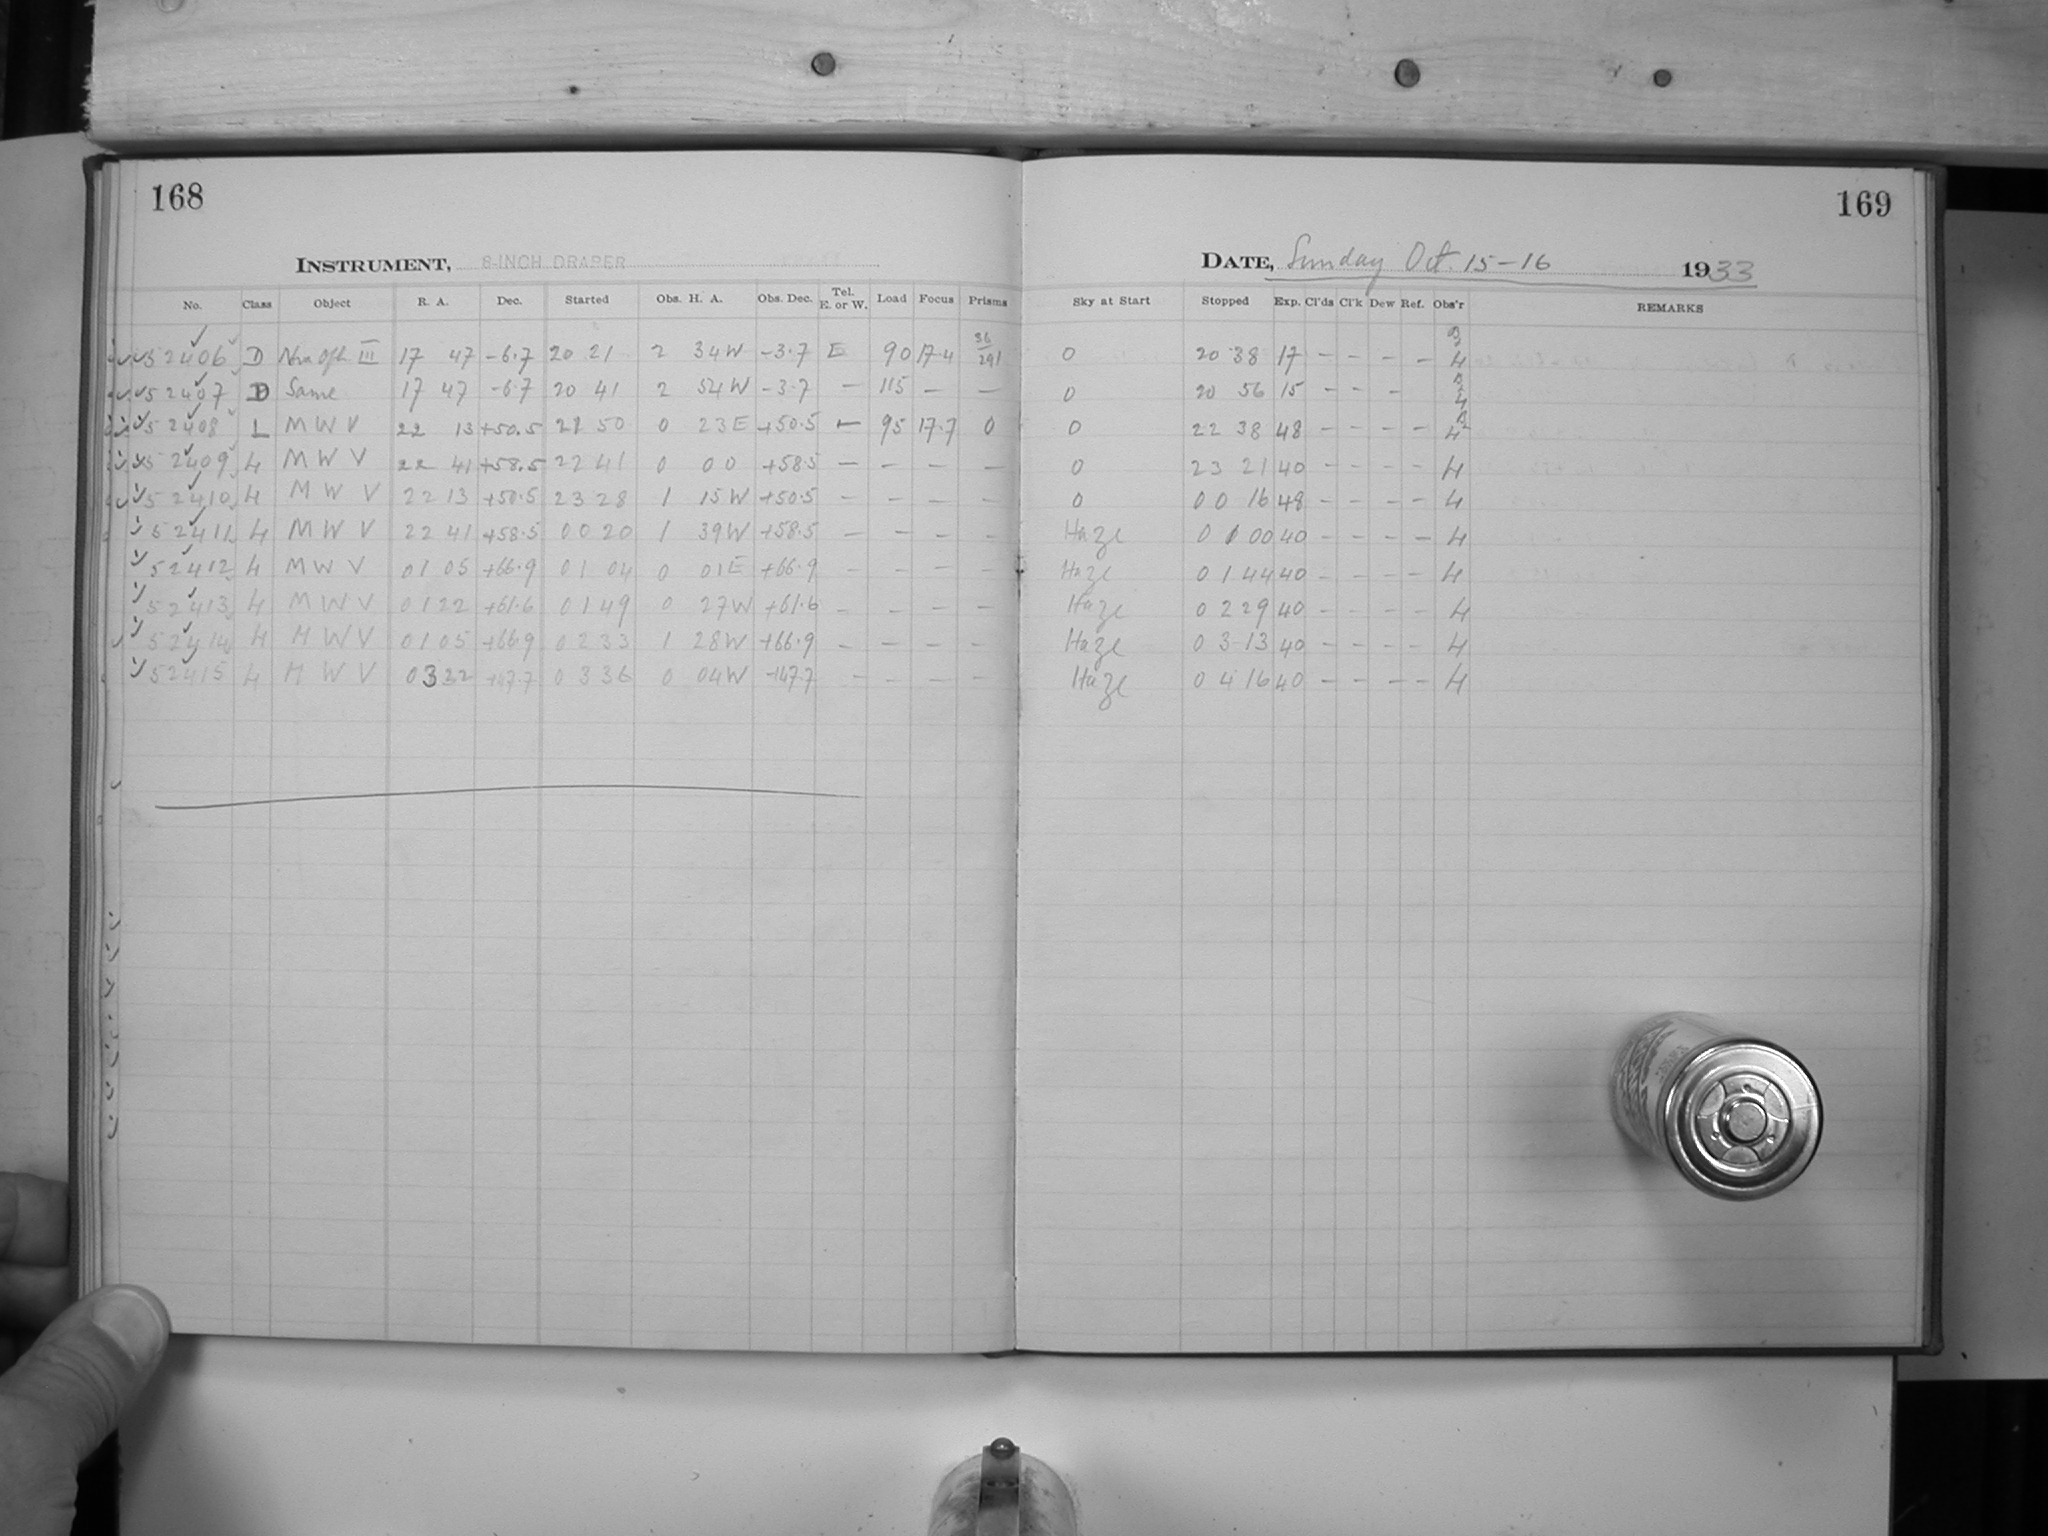 168
INSTRUMENT, 8-INCH DRAPER
No. Class Object R. A. Dec. Started Obs. H. A. Obs. Dec. Tel. E. or W. Load Focus Prisms
52406 D Nova Oph III 17 47 -6.7 20 21 2 34W -3.7 E 90 17.4 36/291
52407 D Same 17 47 -6.7 20 41 2 54W -3.7 — 115 — —
52408 L M W V 22 13 +50.5 21 50 0 23E +50.5 — 95 17.7 0
52409 4 M W V 22 41 +58.5 22 41 0 00 +58.5 — — — —
52410 4 M W V 22 13 +50.5 23 28 1 15W +50.5 — — — —
52411 4 M W V 22 41 +58.5 00 20 1 39W +58.5 — — — —
52412 4 M W V 01 05 +66.9 01 04 0 01E +66.9 — — — —
52413 4 M W V 01 22 +61.6 01 49 0 27W +61.6 — — — —
52414 4 M W V 01 05 +66.9 02 33 1 28W +66.9 — — — —
52415 4 M W V 03 32 +47.7 03 36 0 04W +47.7 — — — —
169
DATE, Sunday Oct. 15-16 1933
Sky at Start Stopped Exp. Cl'ds Cl'k Dew Ref. Obs'r REMARKS
0 20 38 17 — — — — 4
0 20 56 15 — — — 4
0 22 38 48 — — — — 4
0 23 21 40 — — — — 4
0 00 16 48 — — — — 4
Haze 01 00 40 — — — — 4
Haze 01 44 40 — — — — 4
Haze 02 29 40 — — — — 4
Haze 03 13 40 — — — — 4
Haze 04 16 40 — — — — 4